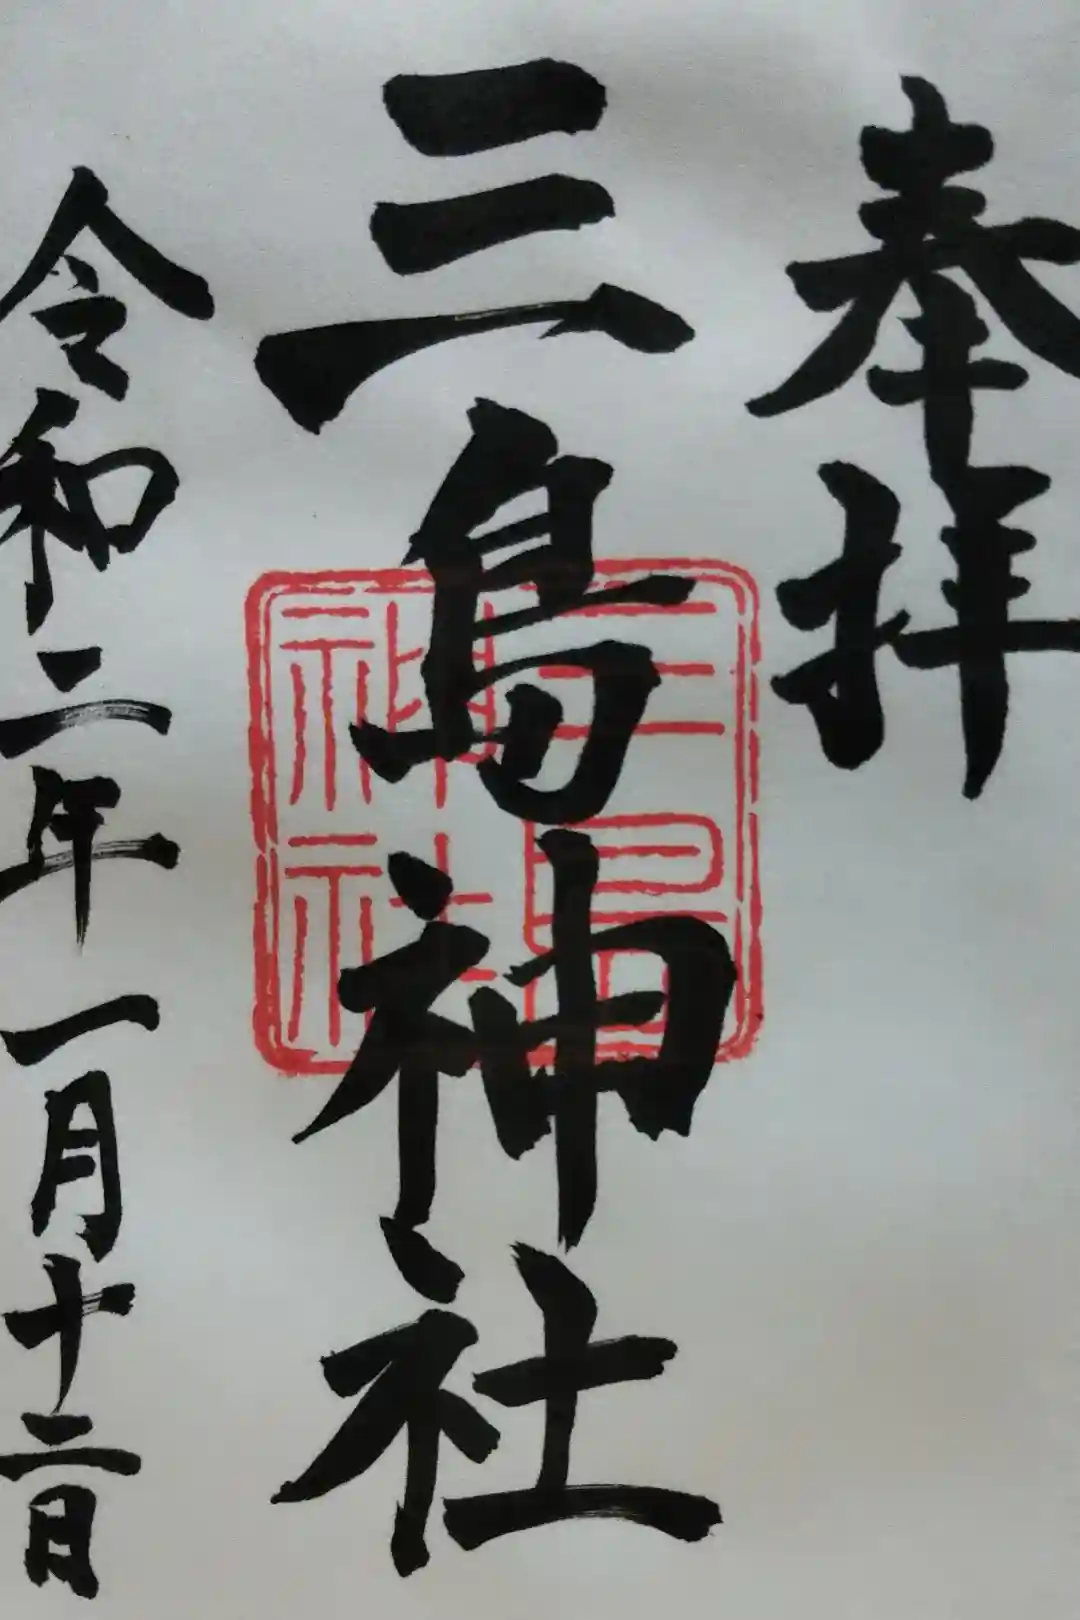 奉拝
三島神社
三島神社
令和二年一月十二日